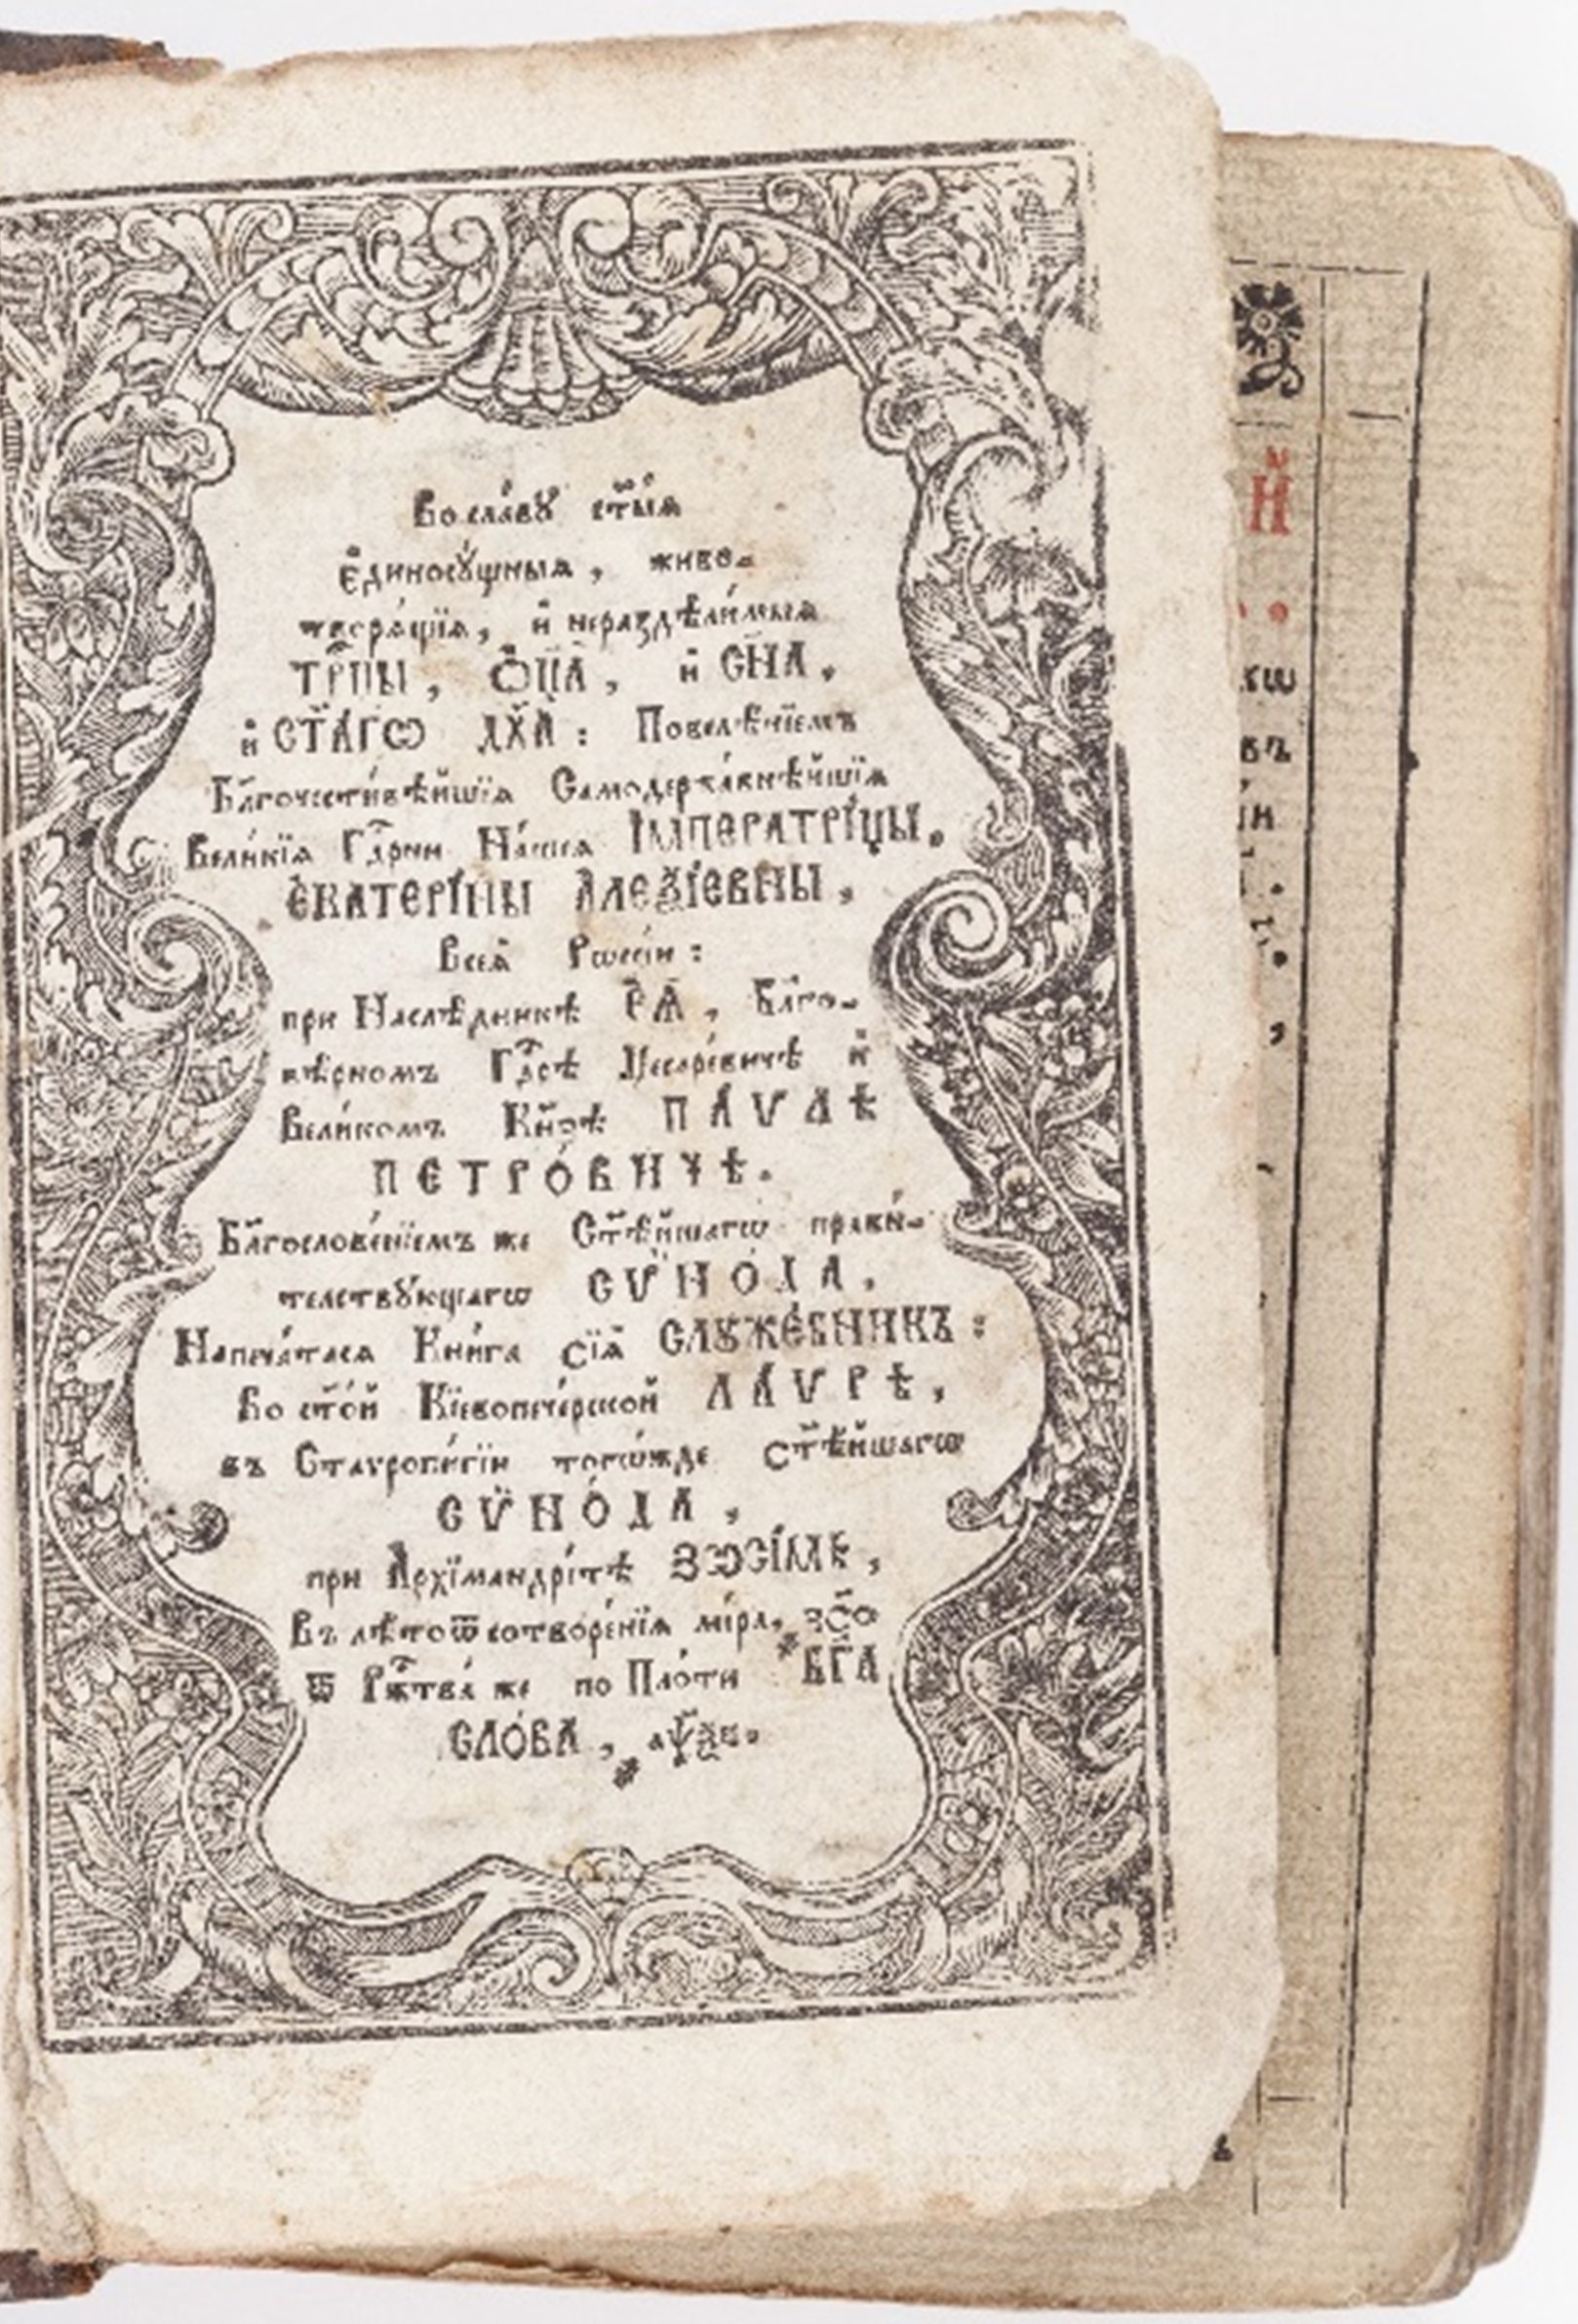 Во сла́вꙋ ст҃ы́ѧ
є҆диносꙋ́щныѧ, живо-
творѧ́щїѧ, и҆ нераздѣли́мыѧ
ТРⷪ҇ЦЫ, Ѻ҆ЦА̀, и҆ СН҃А,
и҆ СТ҃А́ГѠ ДХ҃А: Повелѣ́нїемъ
Бл҃гочести́вѣйшїѧ Самодержа́внѣйшїѧ
Вели́кїѧ Гдⷭ҇рни На́шеѧ ІМПЕРАТРІ́ЦЫ.
ЕКАТЕРІ́НЫ АЛЕѮІ́ЕВНЫ,
Всеѧ̀ Рѡссі́и:
при Наслѣ́дникѣ Е҆Ѧ̀, Бл҃го-
вѣ́рномъ Гдⷭ҇рѣ Цесаре́вичѣ и҆
Вели́комъ Кнѧ҃ѕѣ ПА́ѴЛѢ
ПЕТРО́ВИЧѢ.
Бл҃гослове́нїемъ же Ст҃ѣ́йшагѡ прави́-
телствꙋющагѡ СѴ̈НО́ДА,
Напеча́тасѧ Кни́га сїѧ̀ СЛꙊЖЕ́БНИКЪ:
Во ст҃о́й Кїевопече́рской ЛА́ѴРѢ,
въ Стаѵропи́гїи тогѡ́жде ст҃ѣ́йшагѡ
СѴ̈НО́ДА,
при А҆рхїмандрі́тѣ ЗѠСІ́МѢ,
Въ лѣ́то ѿ сотворе́нїѧ мі́ра,
ѿ Ржⷭ҇тва́ же по Пло́ти БГ҃А
СЛО́ВА,
Й
кѡ
въ